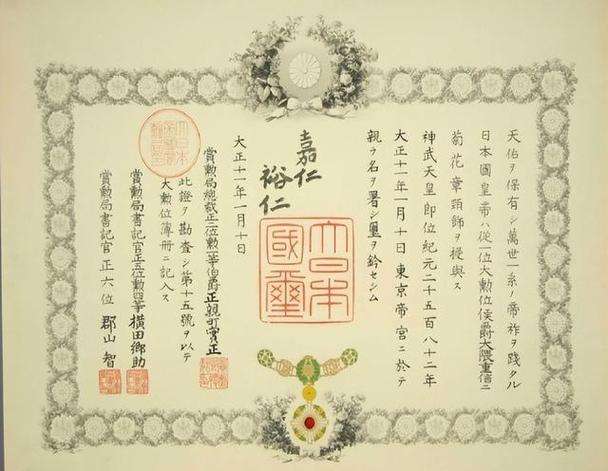 天佑ヲ保有シ萬世一系ノ帝祚ヲ踐タル
日本國皇帝ハ從一位大勲位侯爵大隈重信ニ
菊花章頸飾ヲ授與ス
神武天皇即位紀元二千五百八十二年
大正十一年一月十日東京帝宮ニ於テ
親ラ名ヲ署シ璽ヲ鈐セシム
嘉仁
裕仁
大日本
國璽
大正十一年一月十日
賞勲局總裁正二位勲一等伯爵正親町實正
此證ヲ勘査シ第十五號ヲ以テ
大勲位簿冊ニ記入ス
賞勲局書記官正五位勲四等横田郷助
賞勲局書記官正六位郡山智